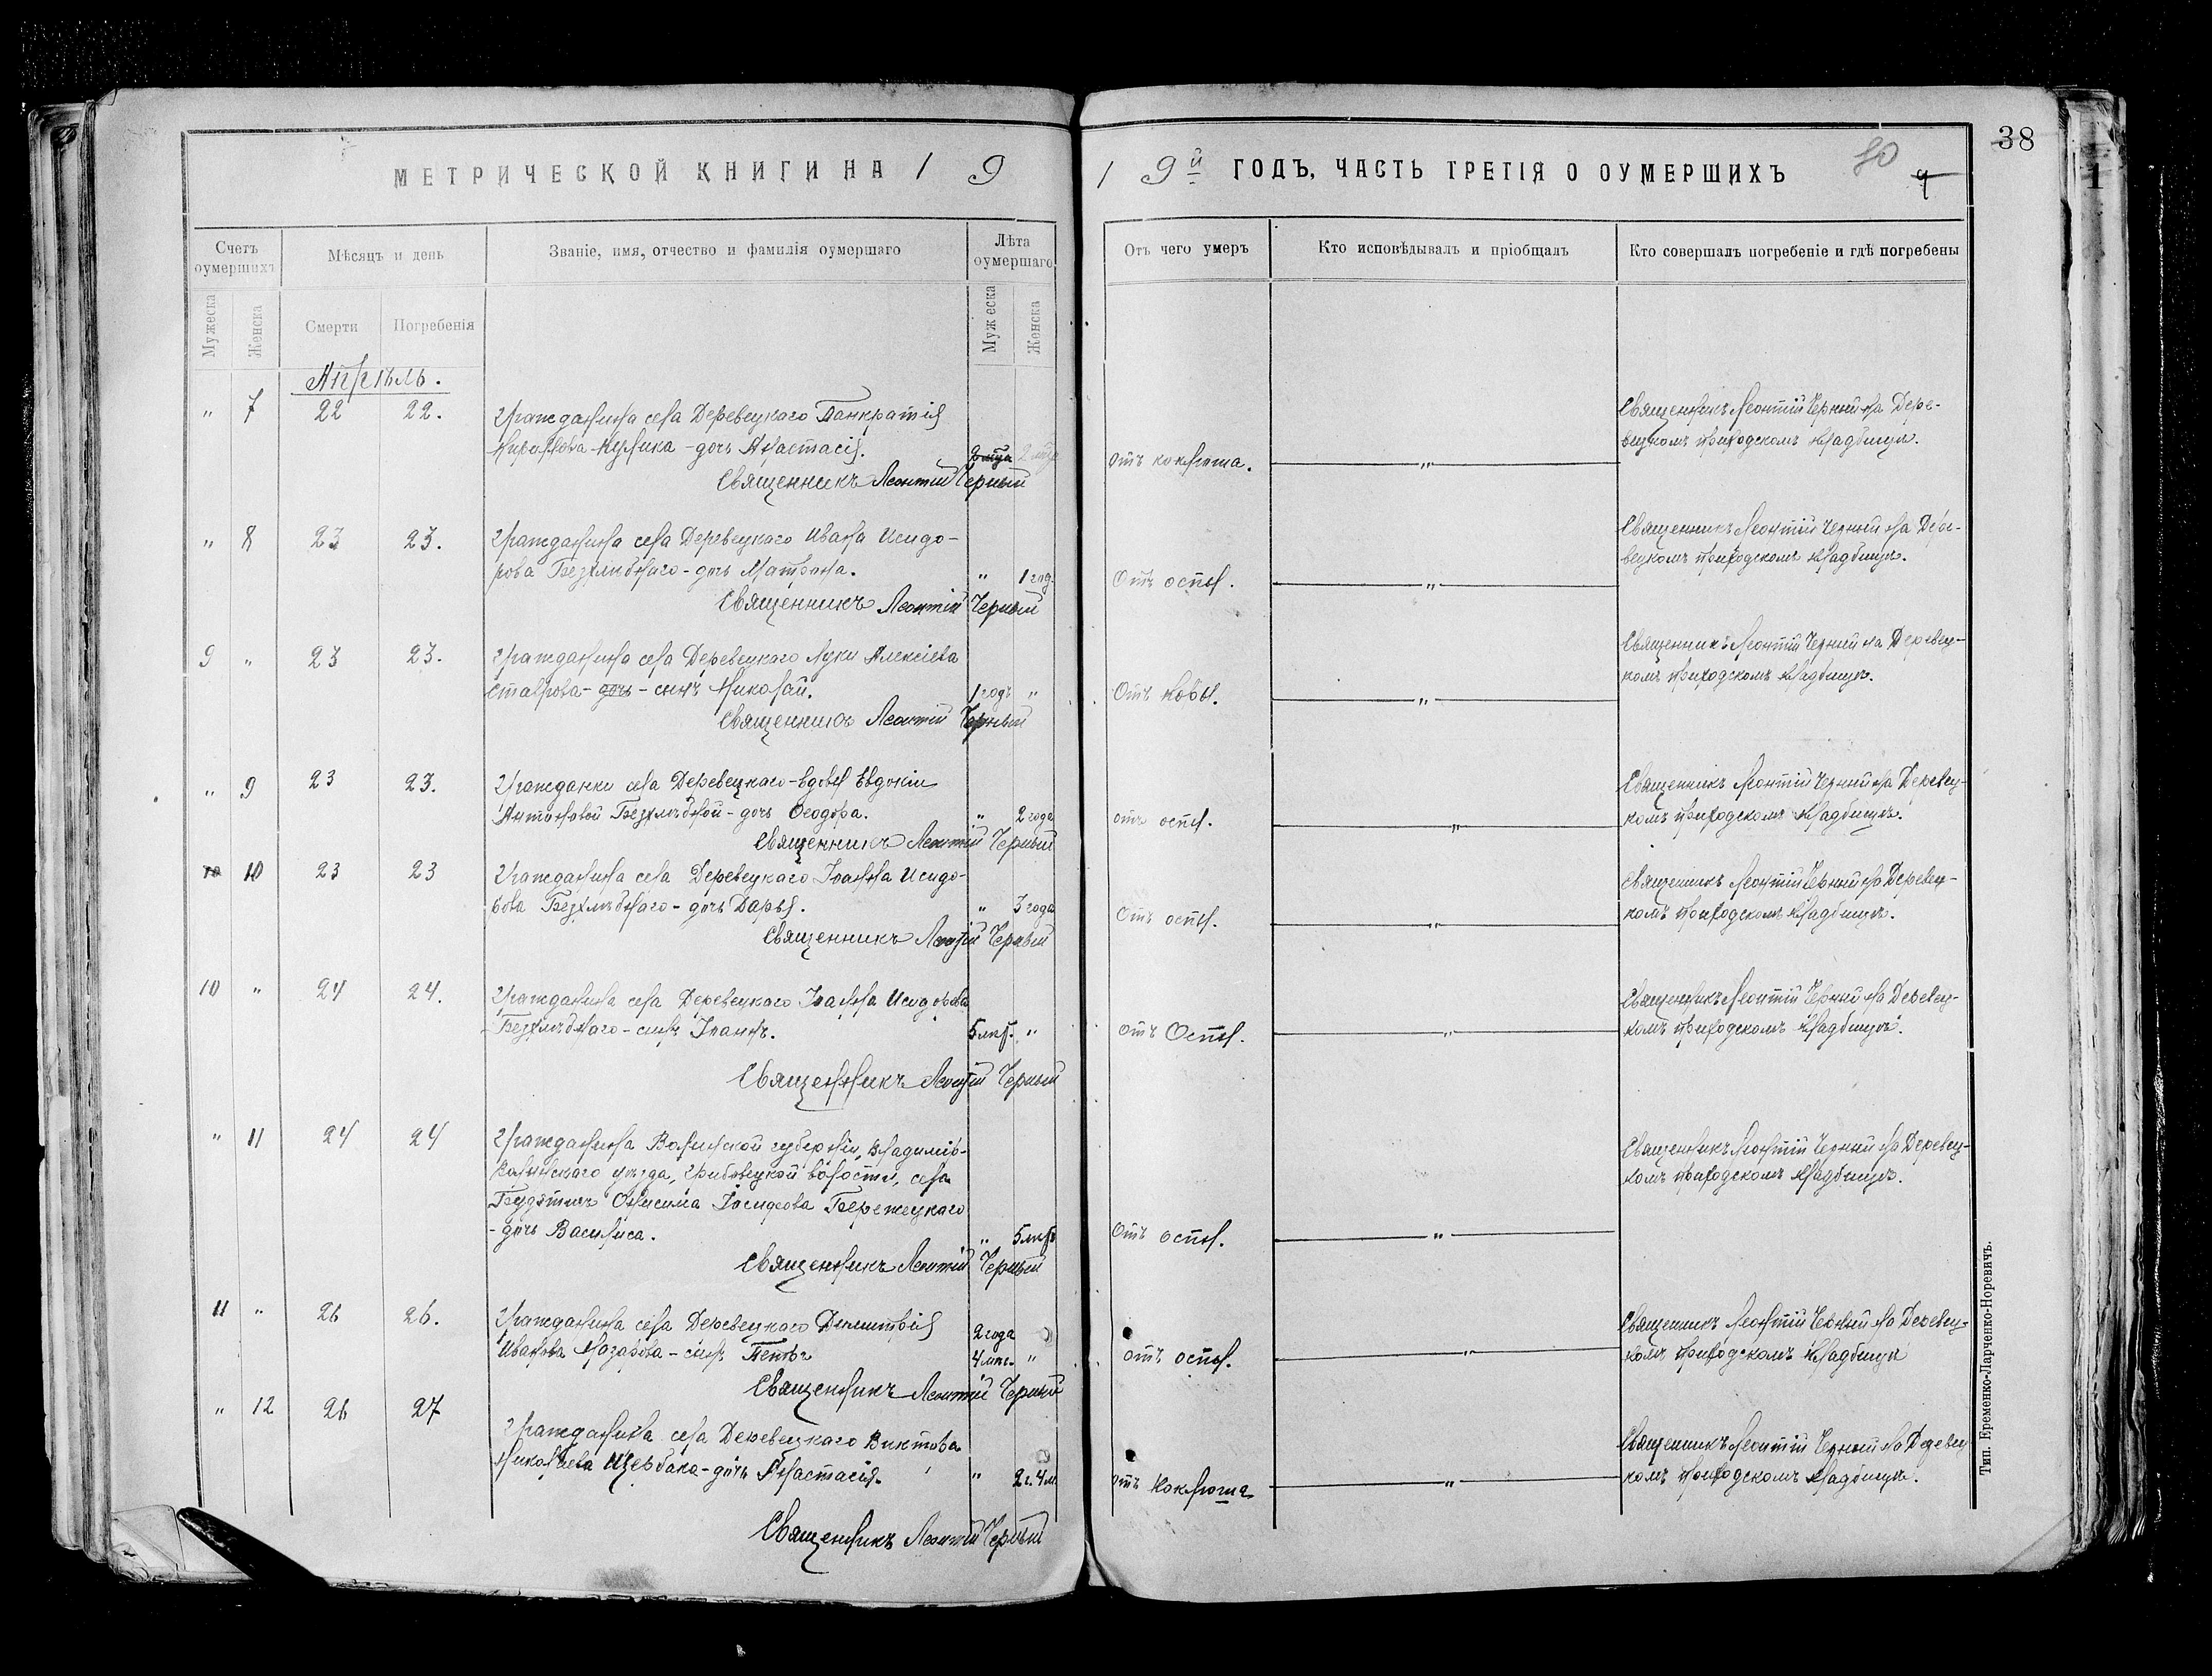 38
МЕТРИЧЕСКОЙ КНИГИ НА 1 9
1 9й ГОДЪ, ЧАСТЬ ТРЕТІЯ О ОУМЕРШИХЪ
80
Счетъ оумершихъ
Мѣсяцъ и день
Званіе, имя, отчество и фамилія оумершаго
Лѣта оумершаго
Отъ чего умеръ
Кто исповѣдывалъ и пріобщалъ
Кто совершалъ погребеніе и гдѣ погребены
Мужеска
Женска
Смерти
Погребенія
Мужеска
Женска
Апрѣль.
" 7 22 22. Гражданина села Деревецкаго Панкратія
Кирилова Кулика - дочь Анастасія.
отъ коклюша. "
Священникъ Леонтій Черный на Дере-
вецкомъ приходскомъ кладбищѣ.
Священникъ Леонтій Черный
" 8 23 23. Гражданина села Деревецкаго Ивана Исидо-
рова Безхлибнаго - дочь Матрона. " 1 год.
Отъ оспы. "
Священникъ Леонтій Черный на Дере-
вецкомъ приходскомъ кладбищѣ.
Священникъ Леонтій Черный
9 " 23 23. Гражданина села Деревецкаго Луки Алексіева
Ставрова - дочь - сынъ Николай. 1 годъ "
Отъ "
Священникъ Леонтій Черный на Деревец-
комъ приходскомъ кладбищѣ.
Священникъ Леонтій Черный
" 9 23 23. Гражданки села Деревецкаго - вдовы Евдокіи
Антиповой Безхлѣбной - дочь Ѳеодора. " 2 года
отъ оспы. "
Священникъ Леонтій Черный на Деревец-
комъ приходскомъ кладбищѣ.
Священникъ Леонтій Черный
10 10 23 23 Гражданина села Деревецкаго Іоанна Исидо-
рова Безхлѣбнаго - дочь Дарья. " 3 года
Отъ оспы. "
Священникъ Леонтій Черный на Деревец-
комъ приходскомъ кладбищѣ.
Священникъ Леонтій Черный
10 " 24 24. Гражданина села Деревецкаго Іоанна Исидорова
Безхлѣбнаго - сынъ Іоаннъ. 5 лѣт. "
отъ Оспы. "
Священникъ Леонтій Черный на Деревец-
комъ приходскомъ кладбищѣ.
Священникъ Леонтій Черный
" 11 24 24 Гражданина Волынской губерніи, Владимір-
Волынскаго уѣзда, Грибовецкой волости, села
Будятичъ Онисима Бережецкаго
- дочь Василиса. " 5 лѣтъ
Отъ оспы. "
Священникъ Леонтій Черный на Деревец-
комъ приходскомъ кладбищѣ.
Священникъ Леонтій Черный
11 " 26 26. Гражданина села Деревецкаго Димитрія
Иванова Назарова - сынъ Петръ 2 года 4 мѣс. "
отъ оспы. "
Священникъ Леонтій Черный на Деревец-
комъ приходскомъ кладбищѣ
Священникъ Леонтій Черный
" 12 26 27 Гражданина села Деревецкаго Виктора
Николаева Щербака - дочь Анастасія. " 2 г. 4 м.
отъ коклюша "
Священникъ Леонтій Черный на Деревец-
комъ приходскомъ кладбищѣ.
Священникъ Леонтій Черный
Тип. Еременко-Ларченко-Норевичъ.